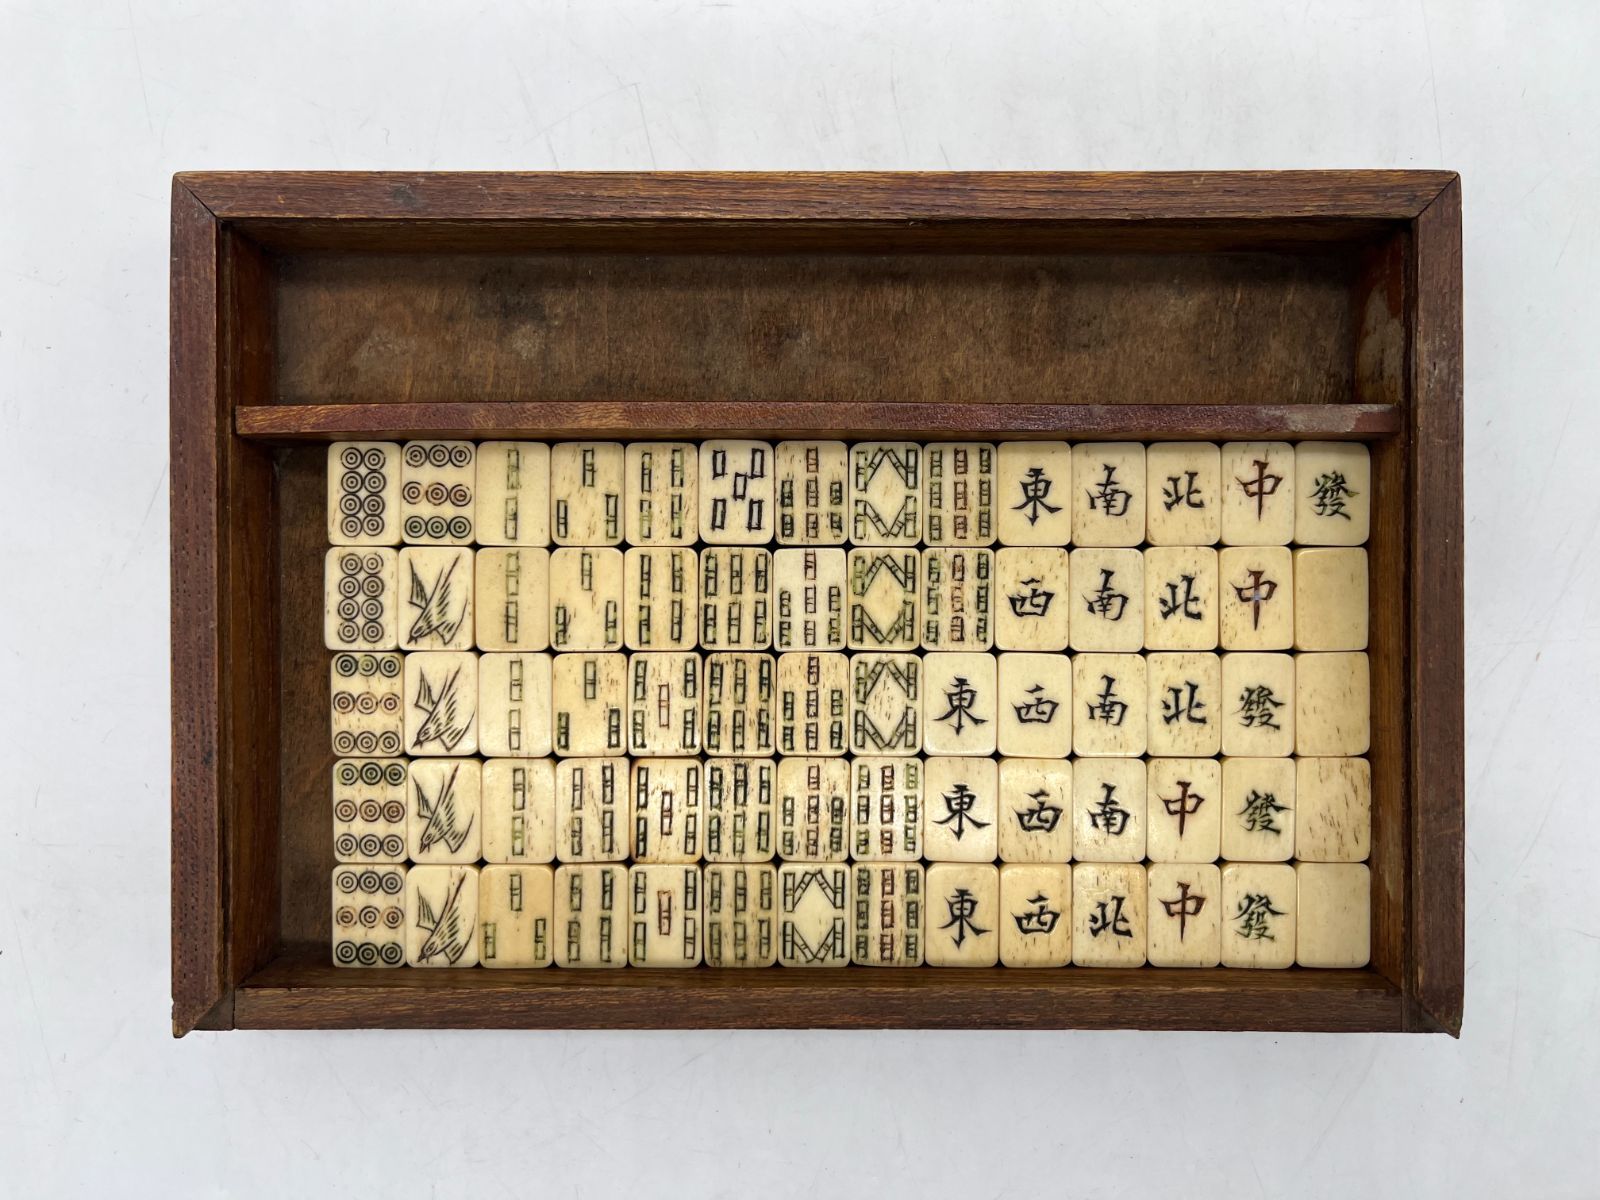 東 南 北 中 發
西 南 北 中
東 西 南 北 發
東 西 南 中 發
東 西 北 中 發